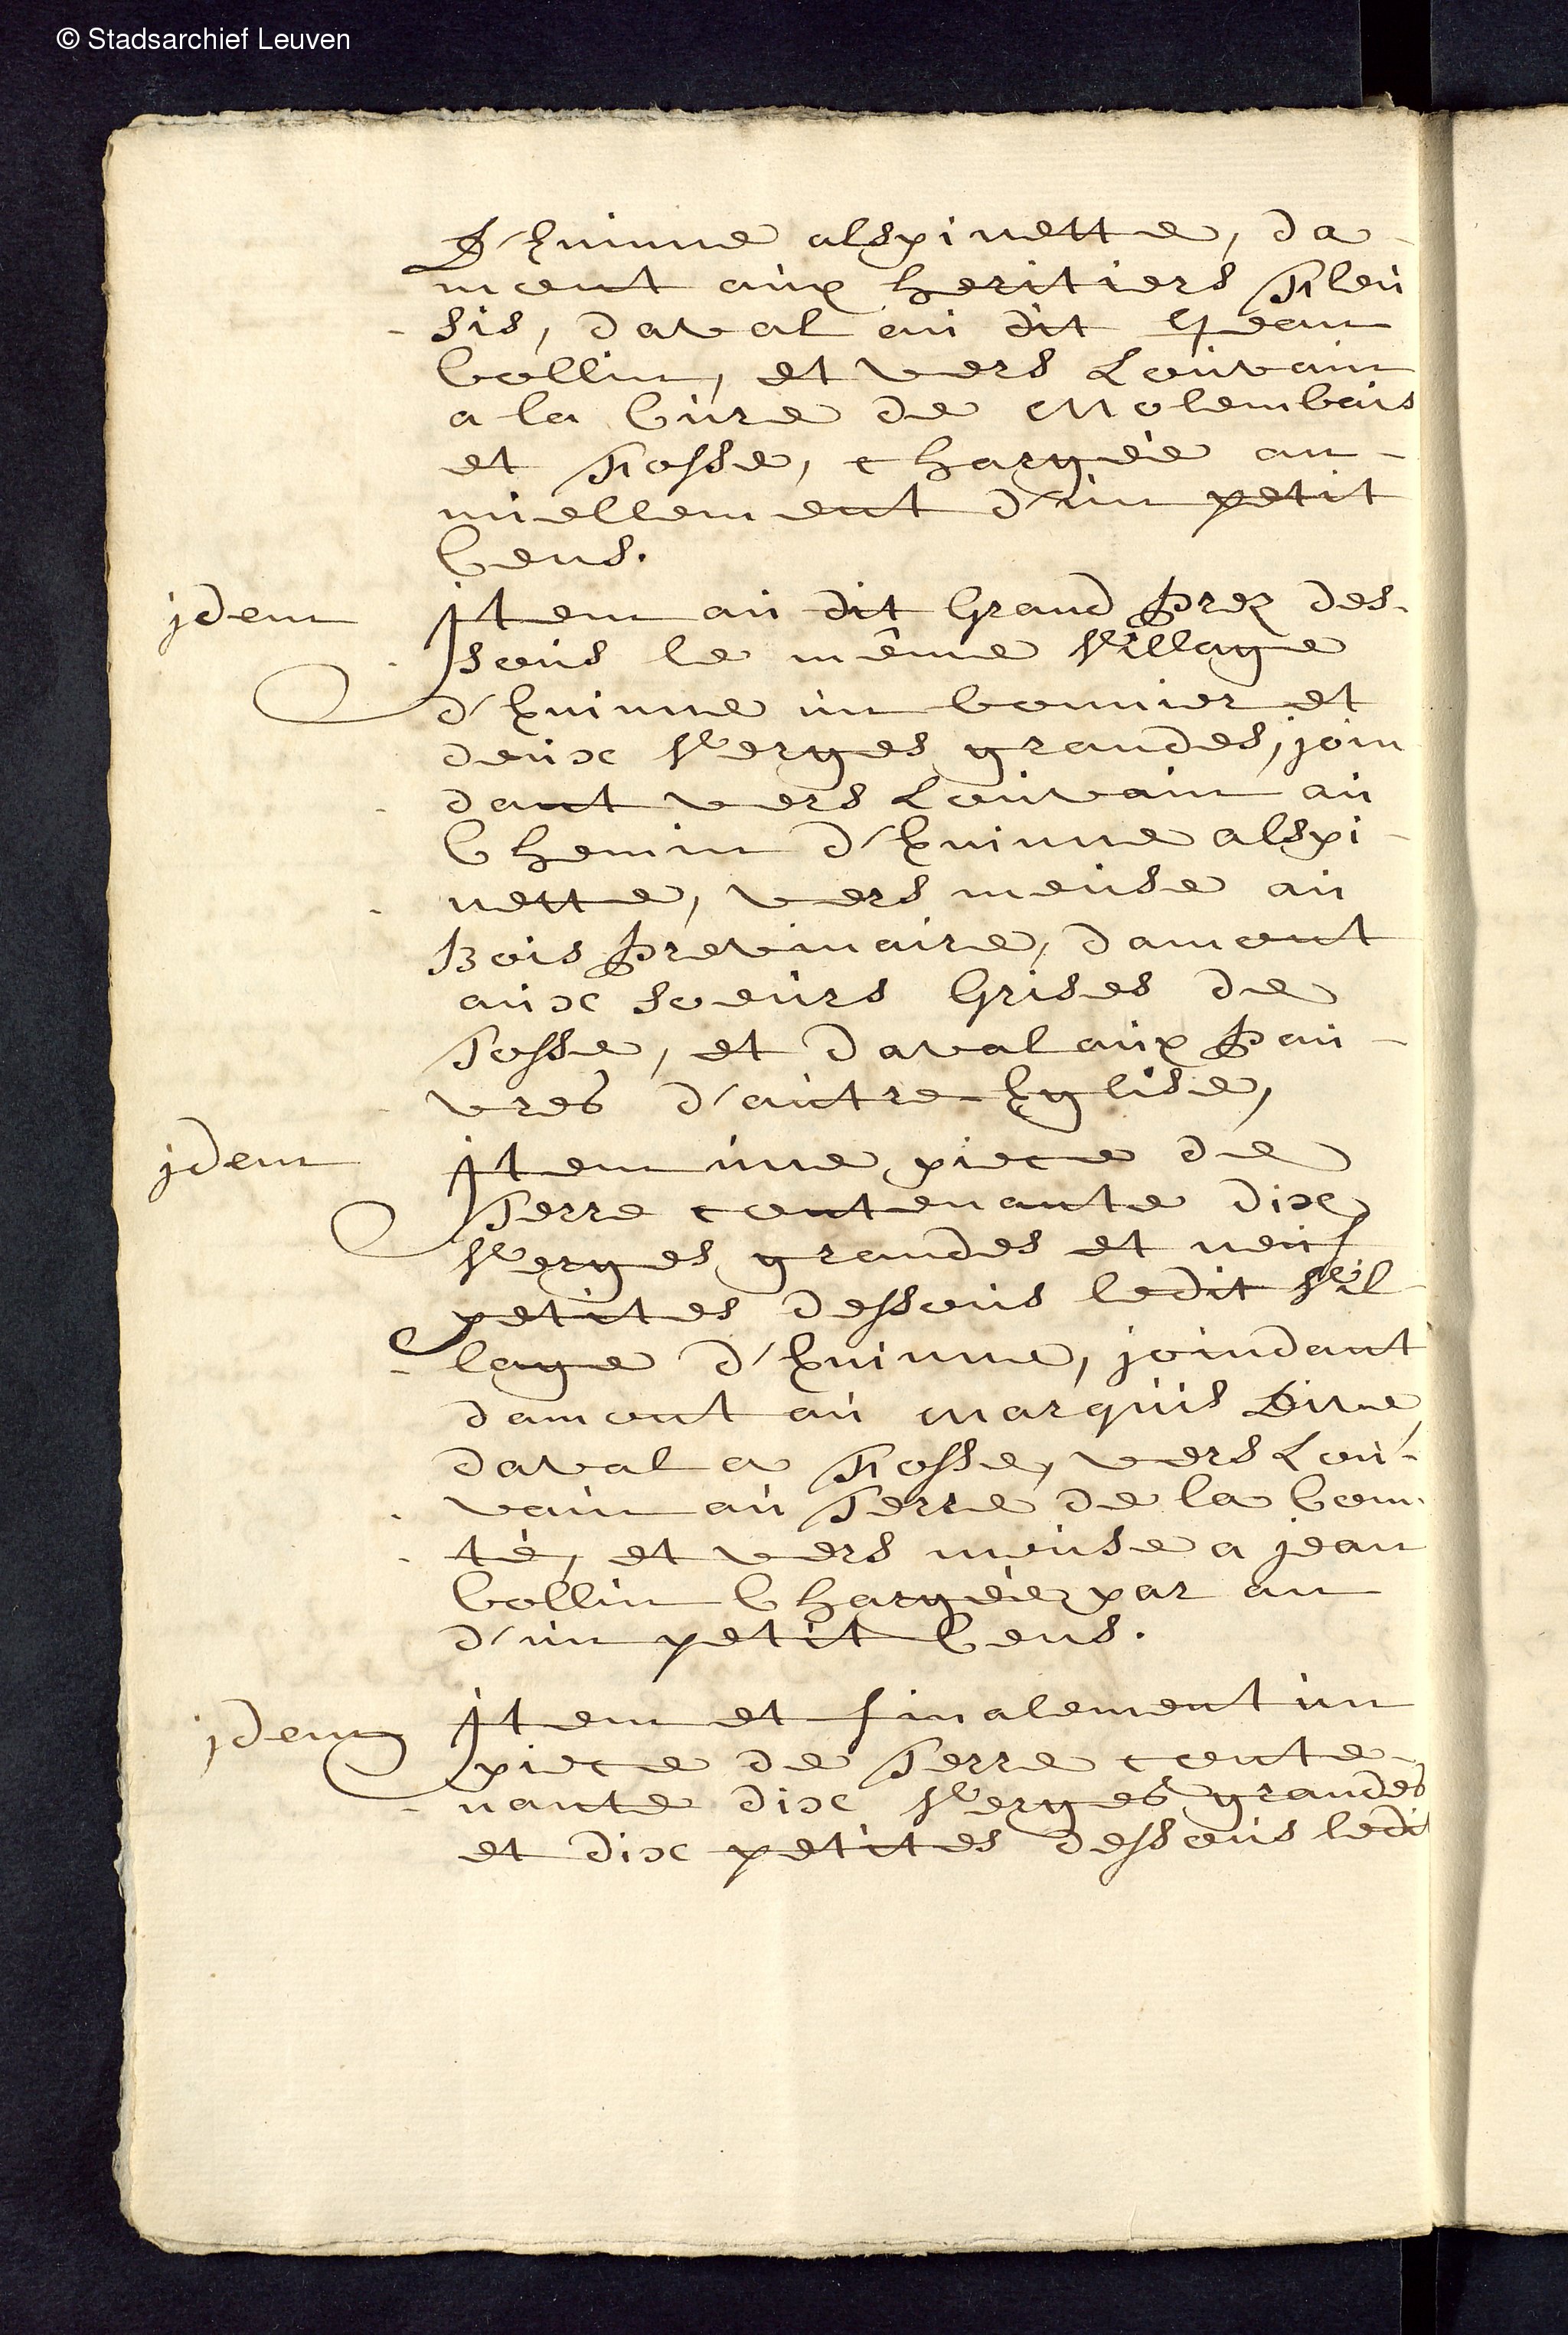 © Stadsarchief Leuven
D'Eninne alspinette, da
mont aux heritiers Pleu
- sis, daval au dit Jean
Collin, et vers Louvain
a la Cure de Molembais
et Fosse, chargée an-
nuellement d'un petit
Cens.
jdem
Jtem au dit Grand Prez des-
sous le même Village
d'Eninne un bonnier et
deux Verges grandes, join
dant vers Louvain au
Chemin d'Eninne alspi-
nette, vers meuse au
Bois Previnaire, damont
aux soeurs Grises de
Fosse, et daval aux Pau-
vres d'autre Eglise,
jdem
Jtem une piece de
Terre contenante dix
Verges grandes et neuf
petites dessous ledit Vil
- lage d'Eninne, joindant
damont au Marquis
daval a Fosse, vers Lou-
vain au Terre de la Com-
- té, et vers meuse a jean
Collin Chargée par an
d'un petit Cens.
jdem
Jtem et finalement un
piece de Terre conte-
- nante dix Verges grandes
et dix petites dessous ledit